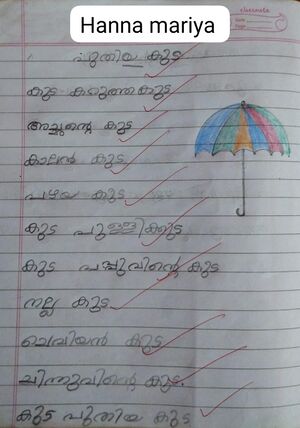 Hanna mariya
classmate
Date
Page
പുതിയ കുട
കുട കറുത്തകുട
അച്ഛന്റെ കുട
കാലൻ കുട
പഴയ കുട
കുട പുള്ളിക്കുട
കുട പപ്പുവിന്റെ കുട
നല്ല കുട
ചെറിയൻ കുട
ചിന്നുവിന്റെ കുട.
കുട പുതിയ കുട